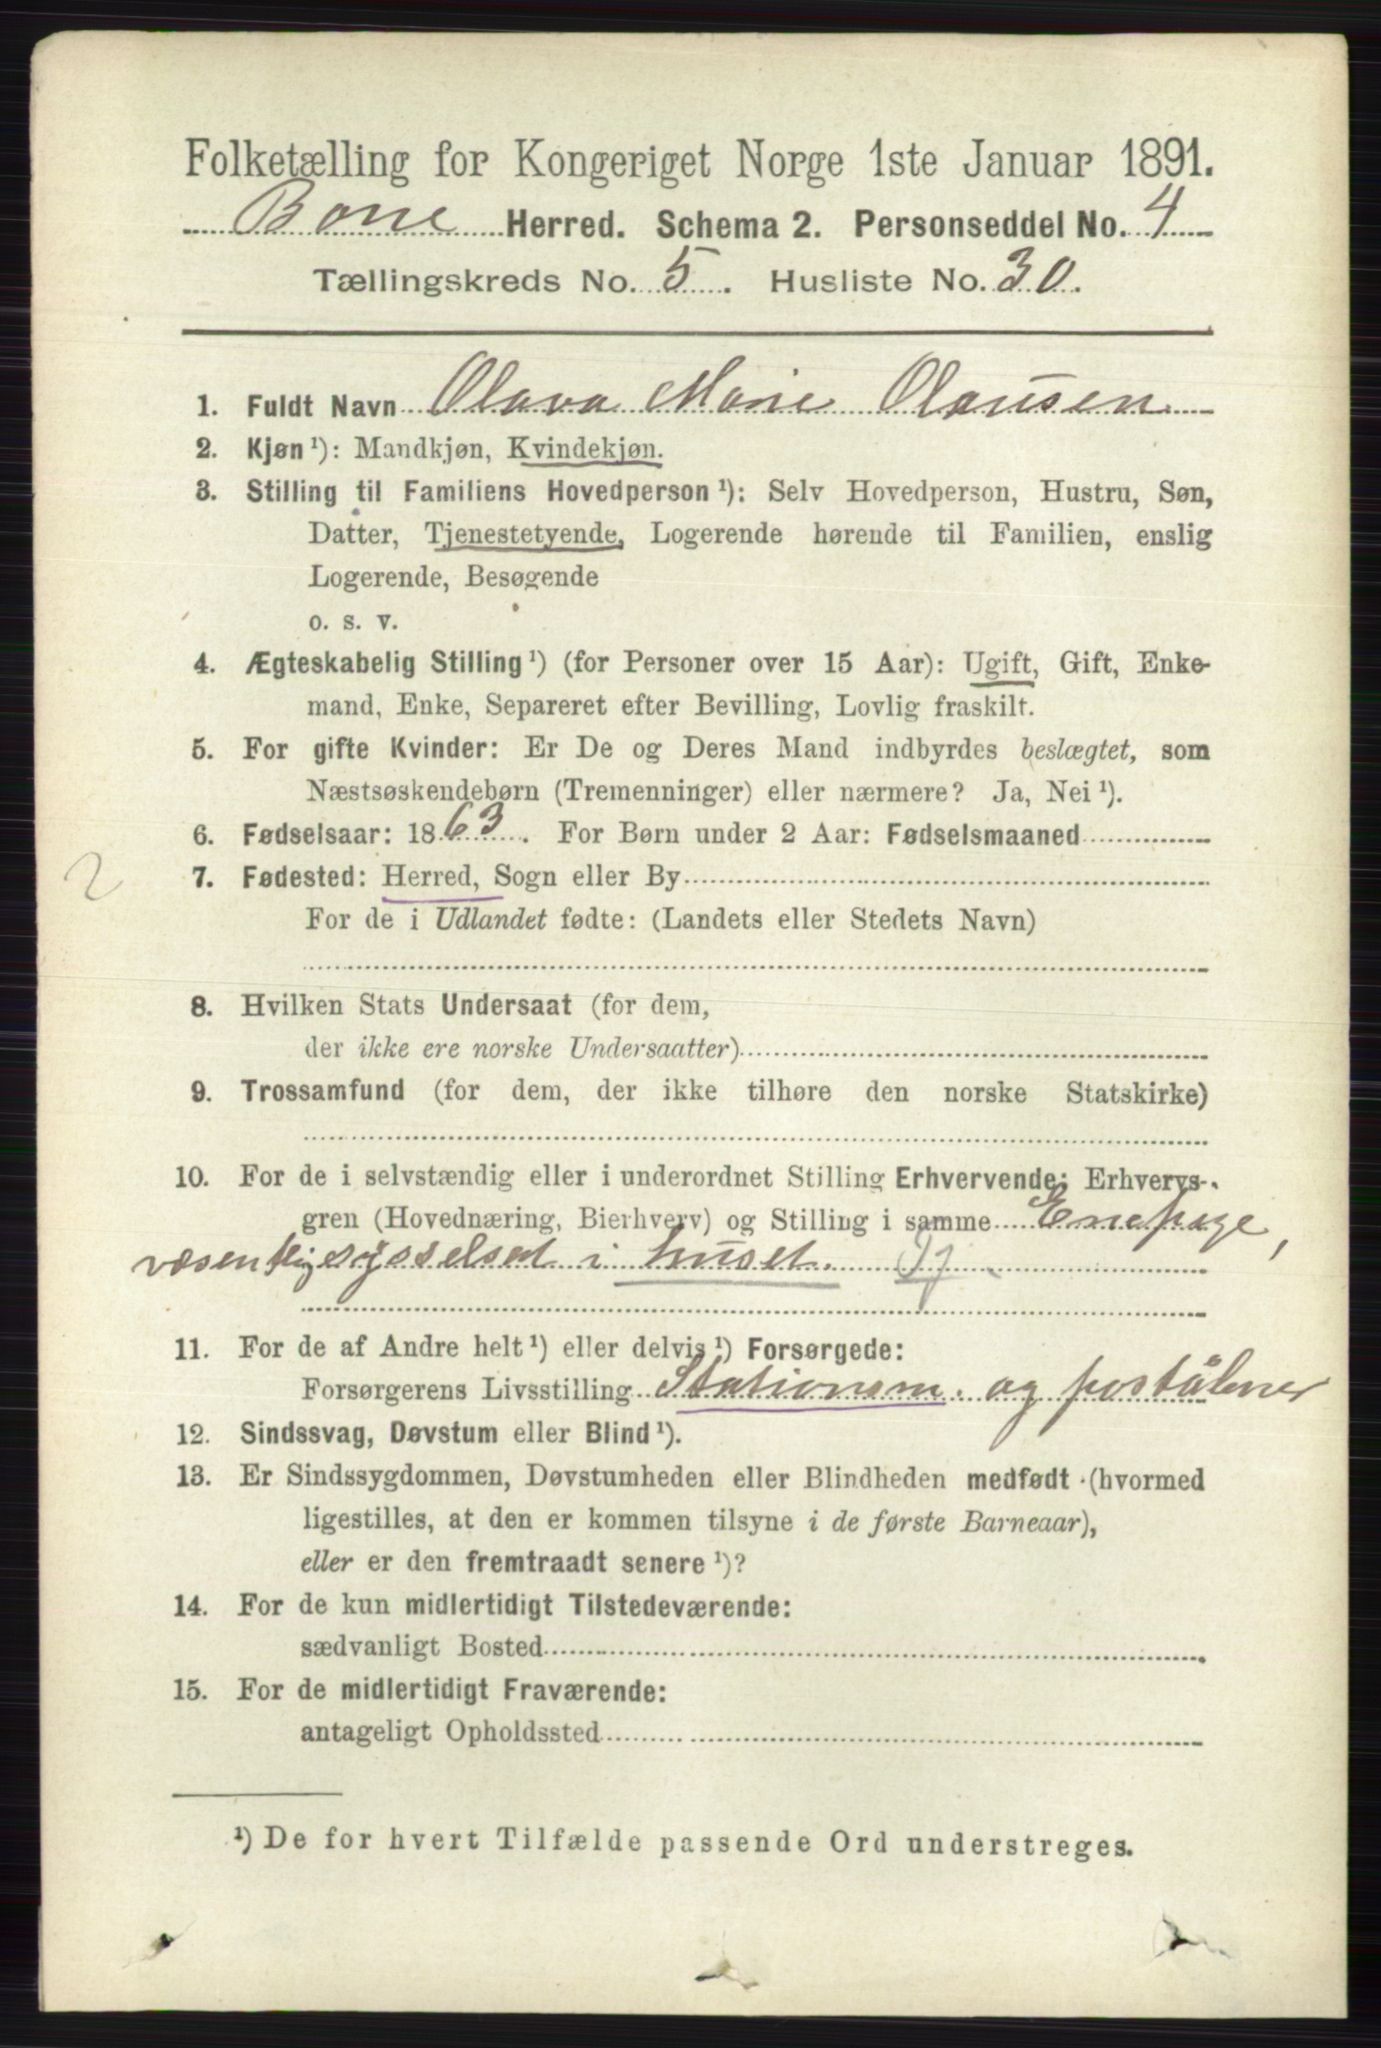 Folketælling for Kongeriget Norge 1ste Januar 1891.
Borre Herred. Schema 2. Personseddel No. 4
Tællingskreds No. 5. Husliste No. 30.
1. Fuldt Navn Olava Marie Olausen
2. Kjøn¹): Mandkjøn, Kvindekjøn.
3. Stilling til Familiens Hovedperson¹): Selv Hovedperson, Hustru, Søn,
Datter, Tjenestetyende, Logerende hørende til Familien, enslig
Logerende, Besøgende
o. s. v.
4. Ægteskabelig Stilling¹) (for Personer over 15 Aar): Ugift, Gift, Enke-
mand, Enke, Separeret efter Bevilling, Lovlig fraskilt.
5. For gifte Kvinder: Er De og Deres Mand indbyrdes beslægtet, som
Næstsøskendebørn (Tremenninger) eller nærmere? Ja, Nei¹).
6. Fødselsaar: 1863. For Børn under 2 Aar: Fødselsmaaned
2
7. Fødested: Herred, Sogn eller By
For de i Udlandet fødte: (Landets eller Stedets Navn)
8. Hvilken Stats Undersaat (for dem,
der ikke ere norske Undersaatter)
9. Trossamfund (for dem, der ikke tilhøre den norske Statskirke)
10. For de i selvstændig eller i underordnet Stilling Erhvervende: Erhvervs-
gren (Hovednæring, Bierhverv) og Stilling i samme Enepige,
væsentlig sysselsat i huset.
11. For de af Andre helt¹) eller delvis¹) Forsørgede:
Forsørgerens Livsstilling Stationsm. og postålner
12. Sindssvag, Døvstum eller Blind¹).
13. Er Sindssygdommen, Døvstumheden eller Blindheden medfødt (hvormed
ligestilles, at den er kommen tilsyne i de første Barneaar),
eller er den fremtraadt senere¹)?
14. For de kun midlertidigt Tilstedeværende:
sædvanligt Bosted
15. For de midlertidigt Fraværende:
antageligt Opholdssted
¹) De for hvert Tilfælde passende Ord understreges.